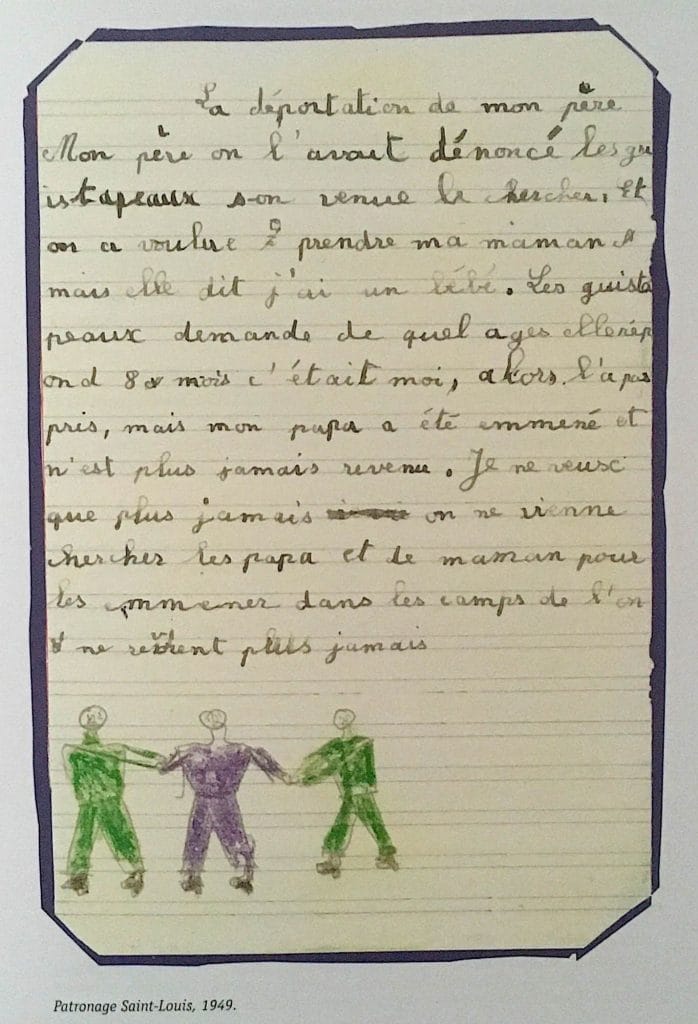 La déportation de mon père
Mon père on l'avait dénoncé les gu
istapeaux son venue le chercher. Et
on a voulue prendre ma maman
mais elle dit j'ai un bébé. Les guista
peaux demande de quel ages elle rép
ond 8 mois c'était moi, alors l'a pas
pris, mais mon papa a été emmené et
n'est plus jamais revenu. Je ne veux
que plus jamais on ne vienne
chercher les papa et de maman pour
les emmener dans les camps de l'on
ne revient plus jamais
Patronage Saint-Louis, 1949.